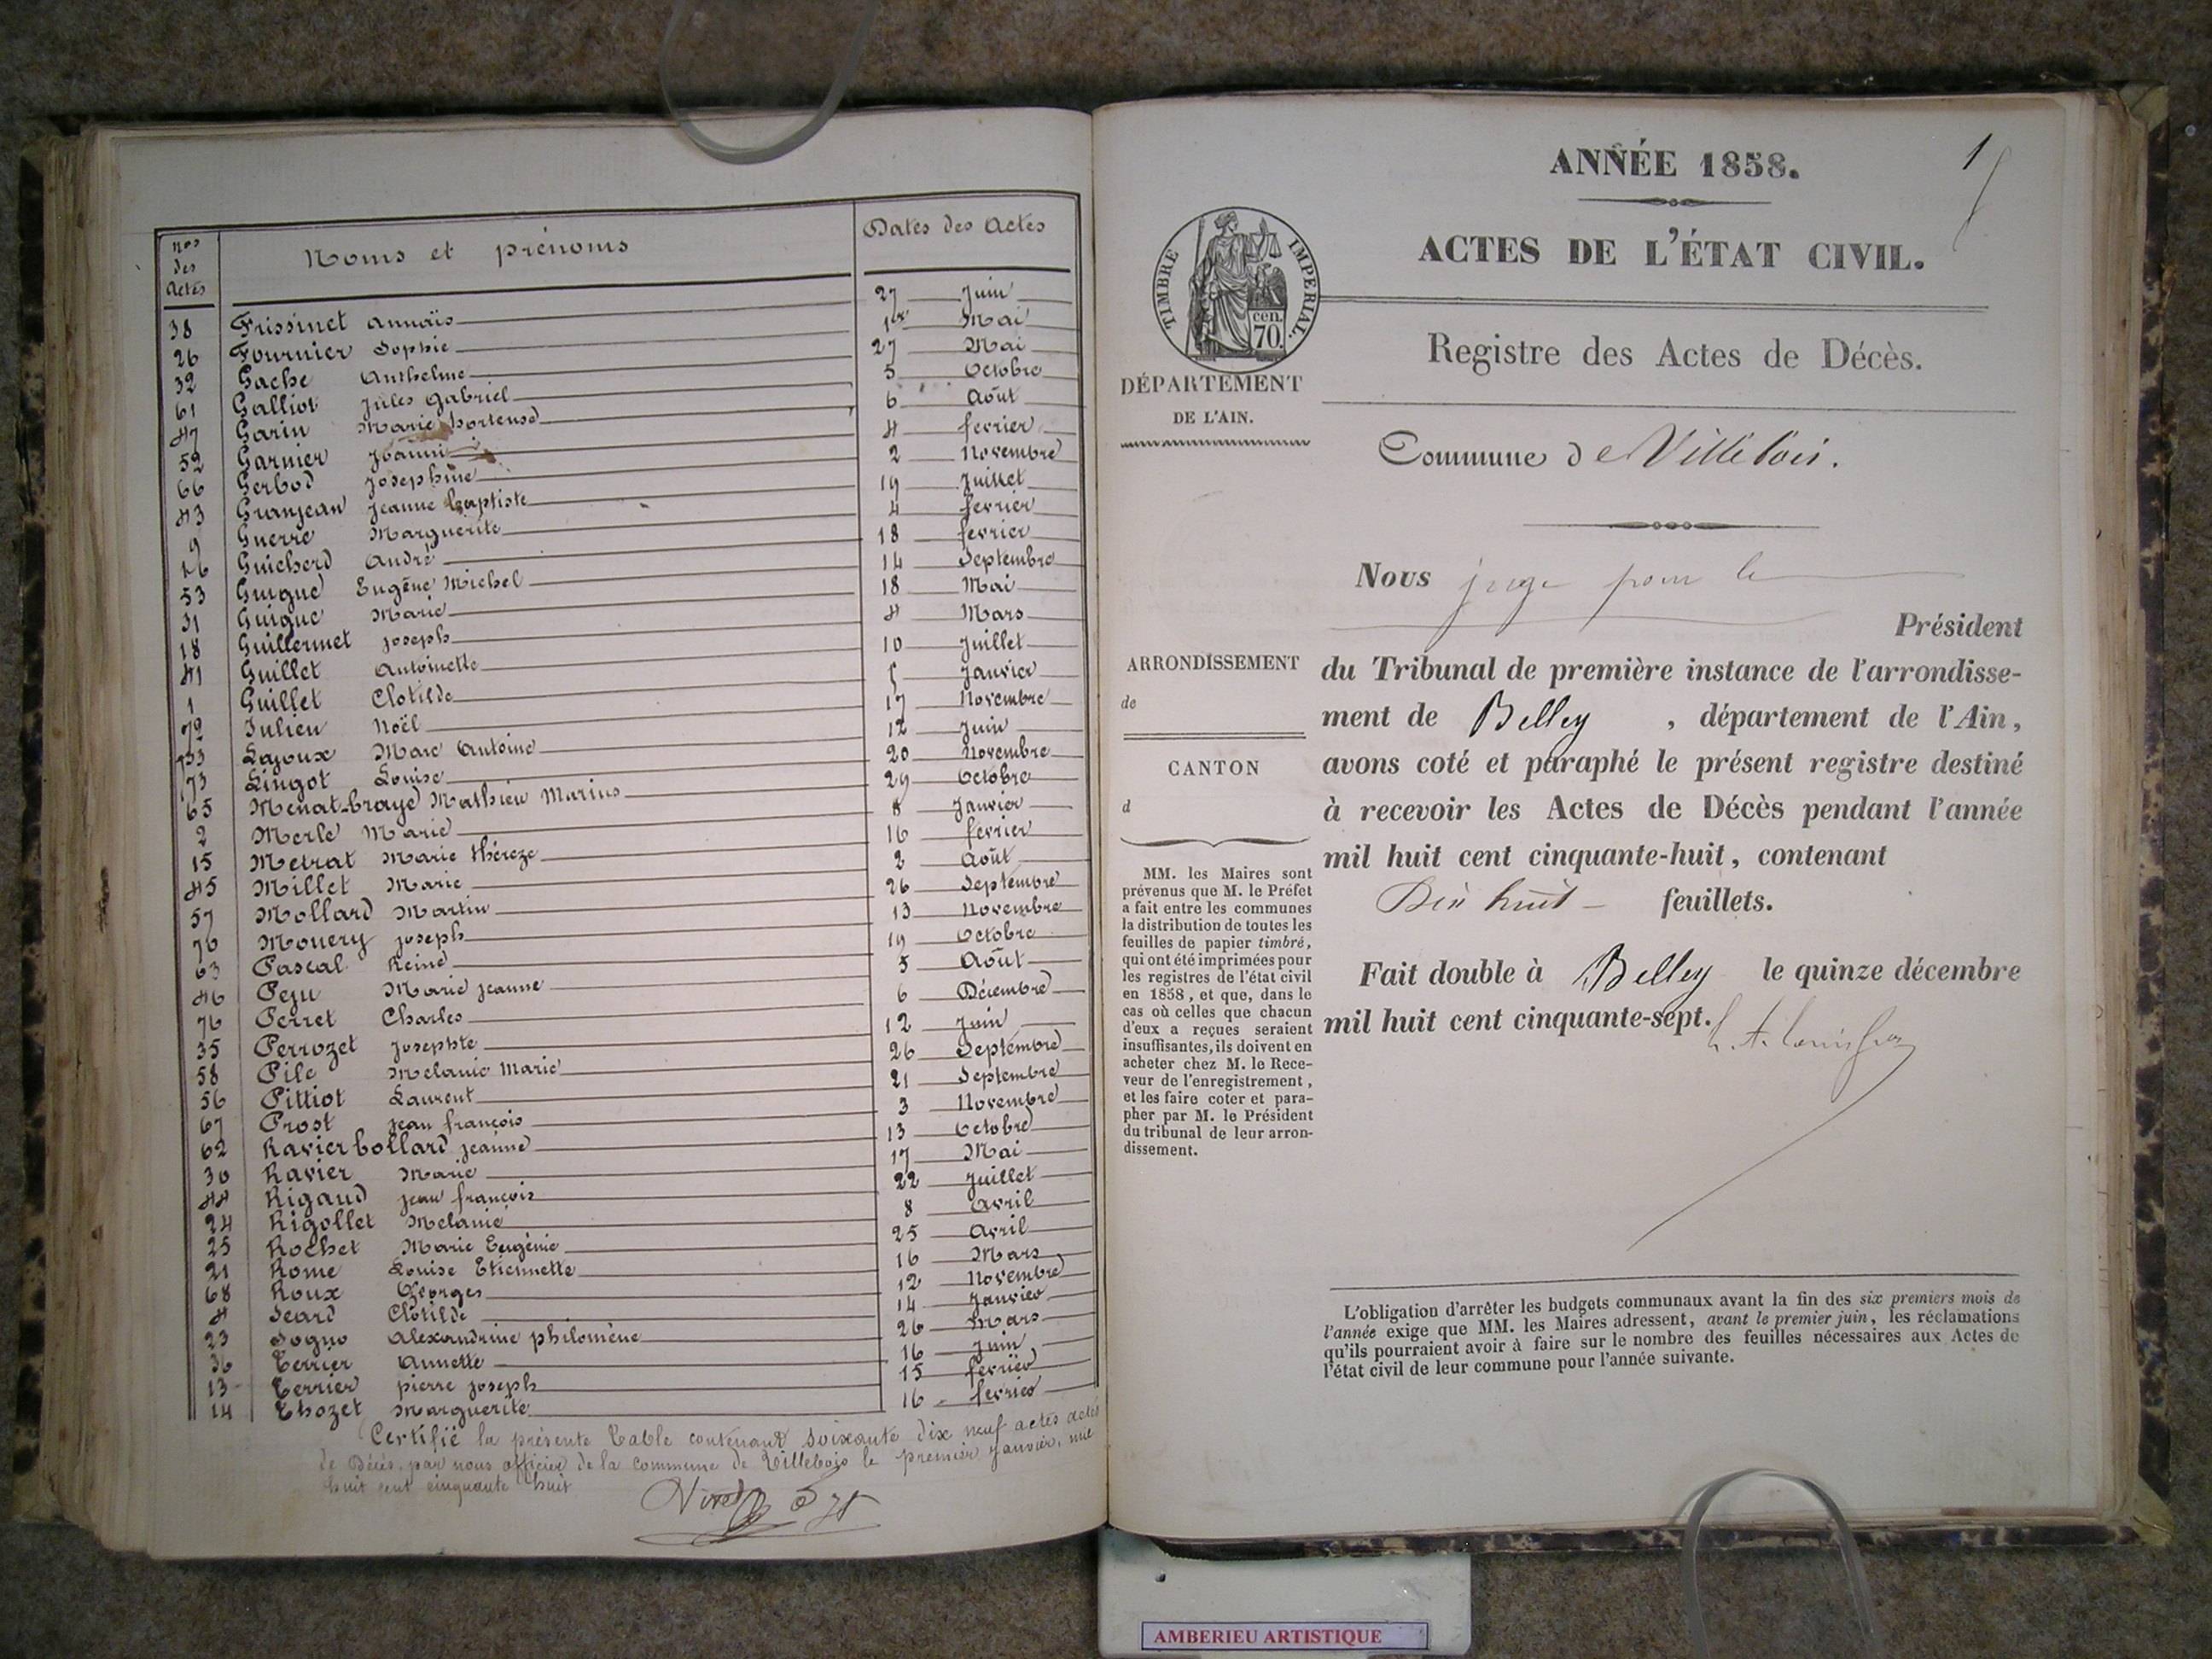 nos des Actes Noms et prénoms Dates des Actes
38 Frissinet Annaïs 27 Juin
26 Fournier Sophie 1er Mai
32 Gache Anthelme 27 Mai
61 Galliot Jules Gabriel 5 Octobre
47 Garin Marie hortense 6 Août
52 Garnier 4 fevrier
66 Gerbod Josephine 2 Novembre
43 Granjean Jeanne Baptiste 19 Juillet
9 Guerre Marguerite 4 fevrier
16 Guicherd André 18 fevrier
53 Guigue Eugène Michel 14 Septembre
31 Guigue Marie 18 Mai
18 Guillermet joseph 4 Mars
41 Guillet Antoinette 10 Juillet
1 Guillet Clotilde 5 Janvier
72 Julien Noël 17 Novembre
33 Lajoux Marc Antoine 12 Juin
73 Lingot Louise 20 Novembre
65 Menat-braye Mathieu Marius 29 Octobre
2 Merle Marie 8 Janvier
15 Metrat Marie thérèze 16 fevrier
45 Millet Marie 2 Août
57 Mollard Martin 26 Septembre
70 Mouery joseph 13 Novembre
63 Pascal Reine 19 Octobre
46 Peju Marie jeanne 5 Août
76 Perret Charles 6 Décembre
35 Perrozet josephte 12 Juin
58 Pile Melanie Marie 26 Septembre
56 Pittiot Laurent 21 Septembre
67 Prost jean françois 3 Novembre
62 Ravier bollard jeanne 13 Octobre
30 Ravier Marie 17 Mai
44 Rigaud jean françois 22 Juillet
24 Rigollet Melanie 8 Avril
25 Rochet Marie Eugénie 25 Avril
21 Rome Louise Etiennette 16 Mars
68 Roux Georges 12 Novembre
4 Seard Clotilde 14 Janvier
23 Sogno Alexandrine philomène 26 Mars
36 Terrier Annette 16 Juin
13 Terrier pierre joseph 15 fevrier
14 Thozet Marguerite 16 fevrier
Certifié la présente Table contenant soixante dix neuf actes actes
de Décès par nous officier de la commune de Villebois le premier janvier, mil
huit cent cinquante huit
1
ANNÉE 1858.
ACTES DE L'ÉTAT CIVIL.
TIMBRE IMPERIAL.
cen.
70.
Registre des Actes de Décès.
DÉPARTEMENT
DE L'AIN.
Commune de Villebois.
Nous juge pour le
Président
ARRONDISSEMENT
de
CANTON
d
du Tribunal de première instance de l'arrondisse-
ment de Belley , département de l'Ain,
avons coté et paraphé le présent registre destiné
à recevoir les Actes de Décès pendant l'année
mil huit cent cinquante-huit, contenant
Dix huit feuillets.
Fait double à Belley le quinze décembre
mil huit cent cinquante-sept.
MM. les Maires sont
prévenus que M. le Préfet
a fait entre les communes
la distribution de toutes les
feuilles de papier timbré,
qui ont été imprimées pour
les registres de l'état civil
en 1858, et que, dans le
cas où celles que chacun
d'eux a reçues seraient
insuffisantes, ils doivent en
acheter chez M. le Rece-
veur de l'enregistrement,
et les faire coter et para-
pher par M. le Président
du tribunal de leur arron-
dissement.
L'obligation d'arrêter les budgets communaux avant la fin des six premiers mois de
l'année exige que MM. les Maires adressent, avant le premier juin, les réclamations
qu'ils pourraient avoir à faire sur le nombre des feuilles nécessaires aux Actes de
l'état civil de leur commune pour l'année suivante.
AMBERIEU ARTISTIQUE